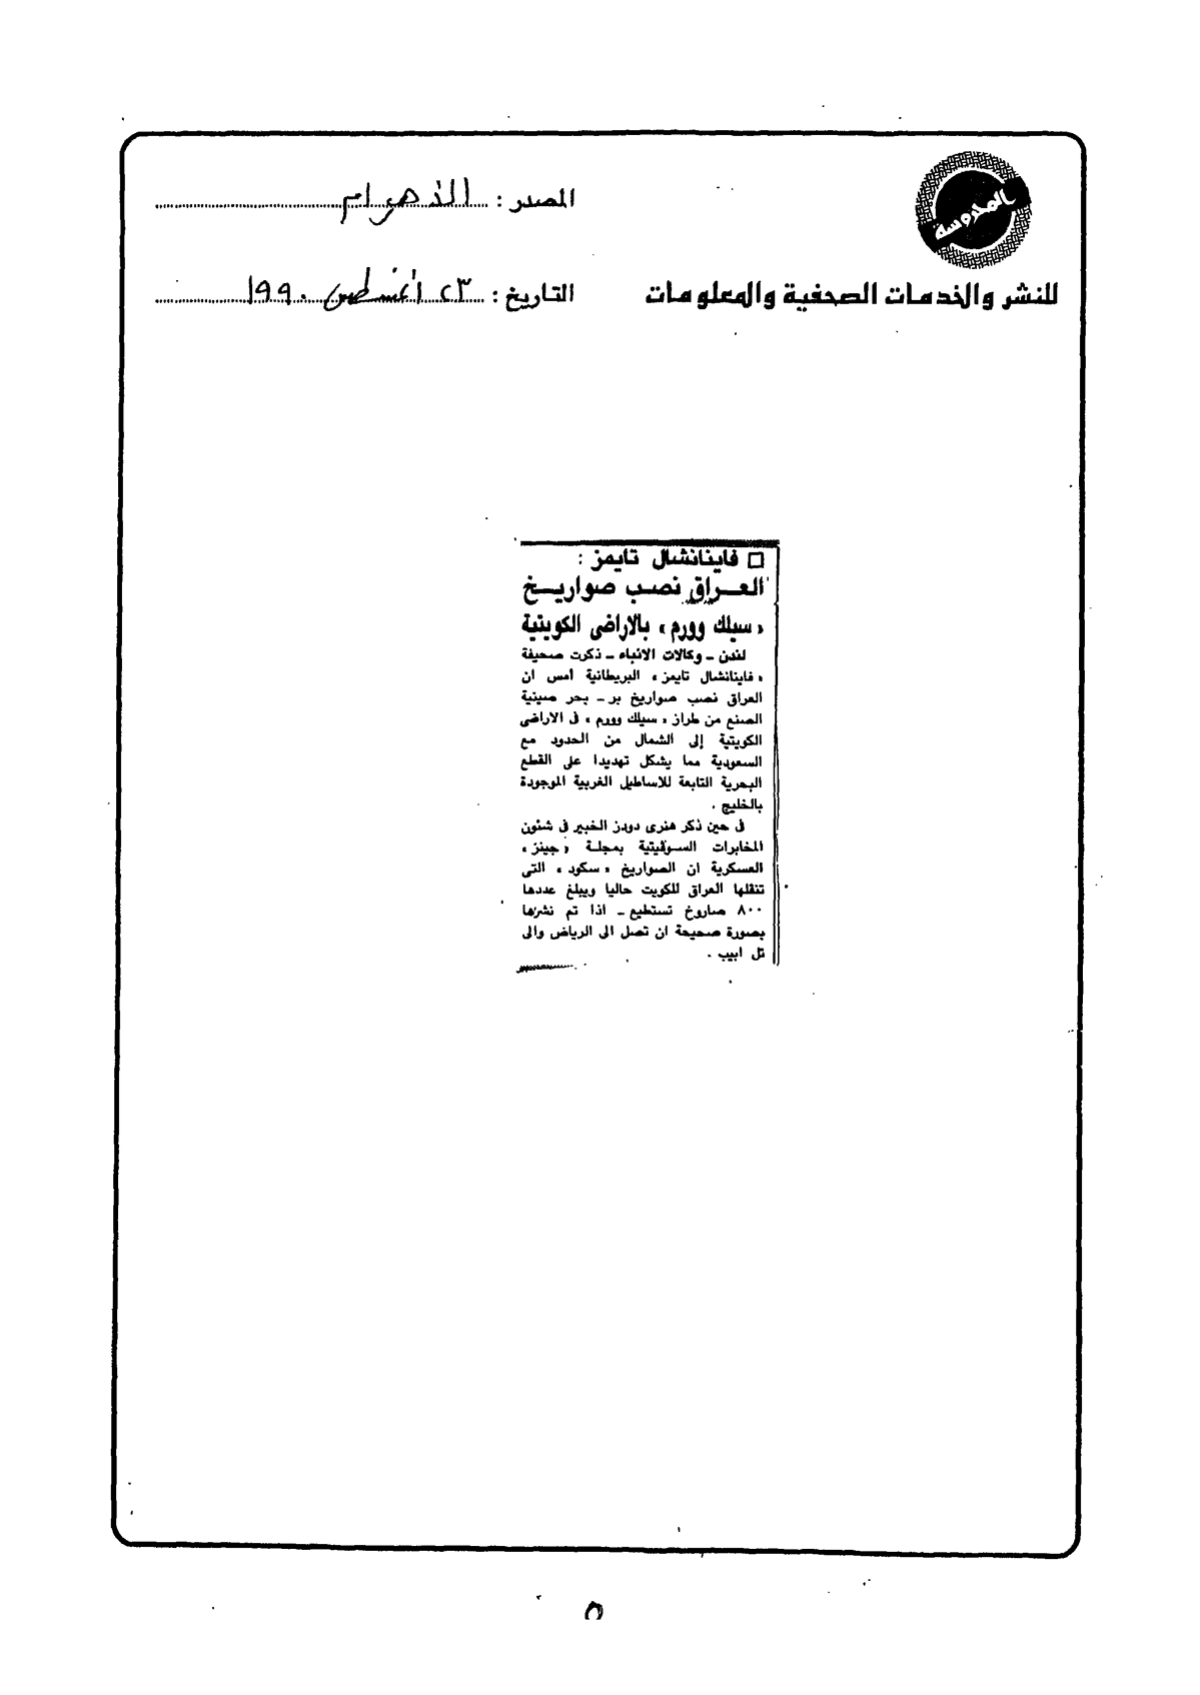 المحروسة
المصدر : الأهرام
للنشر والخدمات الصحفية والمعلومات
التاريخ : ٢٣ أغسطس ١٩٩٠
□ فاينانشال تايمز :
العراق نصب صواريخ
« سيلك وورم » بالاراضى الكويتية
لندن ـ وكالات الانباء ـ ذكرت صحيفة
« فاينانشال تايمز » البريطانية أمس ان
العراق نصب صواريخ بر ـ بحر صينية
الصنع من طراز « سيلك وورم » فى الاراضى
الكويتية إلى الشمال من الحدود مع
السعودية مما يشكل تهديدا على القطع
البحرية التابعة للاساطيل الغربية الموجودة
بالخليج .
فى حين ذكر هنرى دودز الخبير فى شئون
المخابرات السوفيتية بمجلة « جينز »
العسكرية ان الصواريخ « سكود » التى
تنقلها العراق للكويت حاليا ويبلغ عددها
٨٠٠ صاروخ تستطيع ـ اذا تم نشرها
بصورة صحيحة ان تصل الى الرياض والى
تل ابيب .
٥